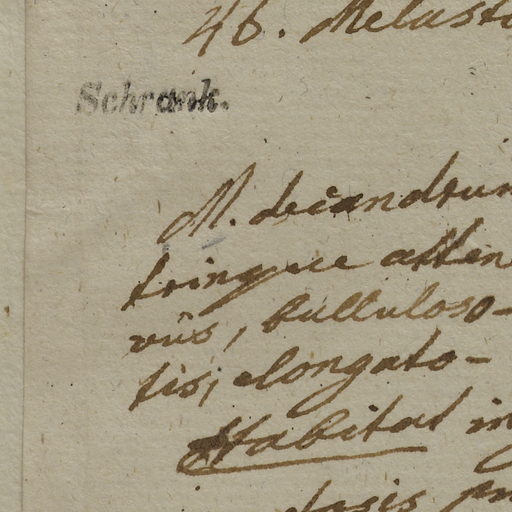 46. Melasto
Schrank.
M. decandrum
tringue atten
viis, bulluloso-
tis; elongato-
Habitat in
dasis pr